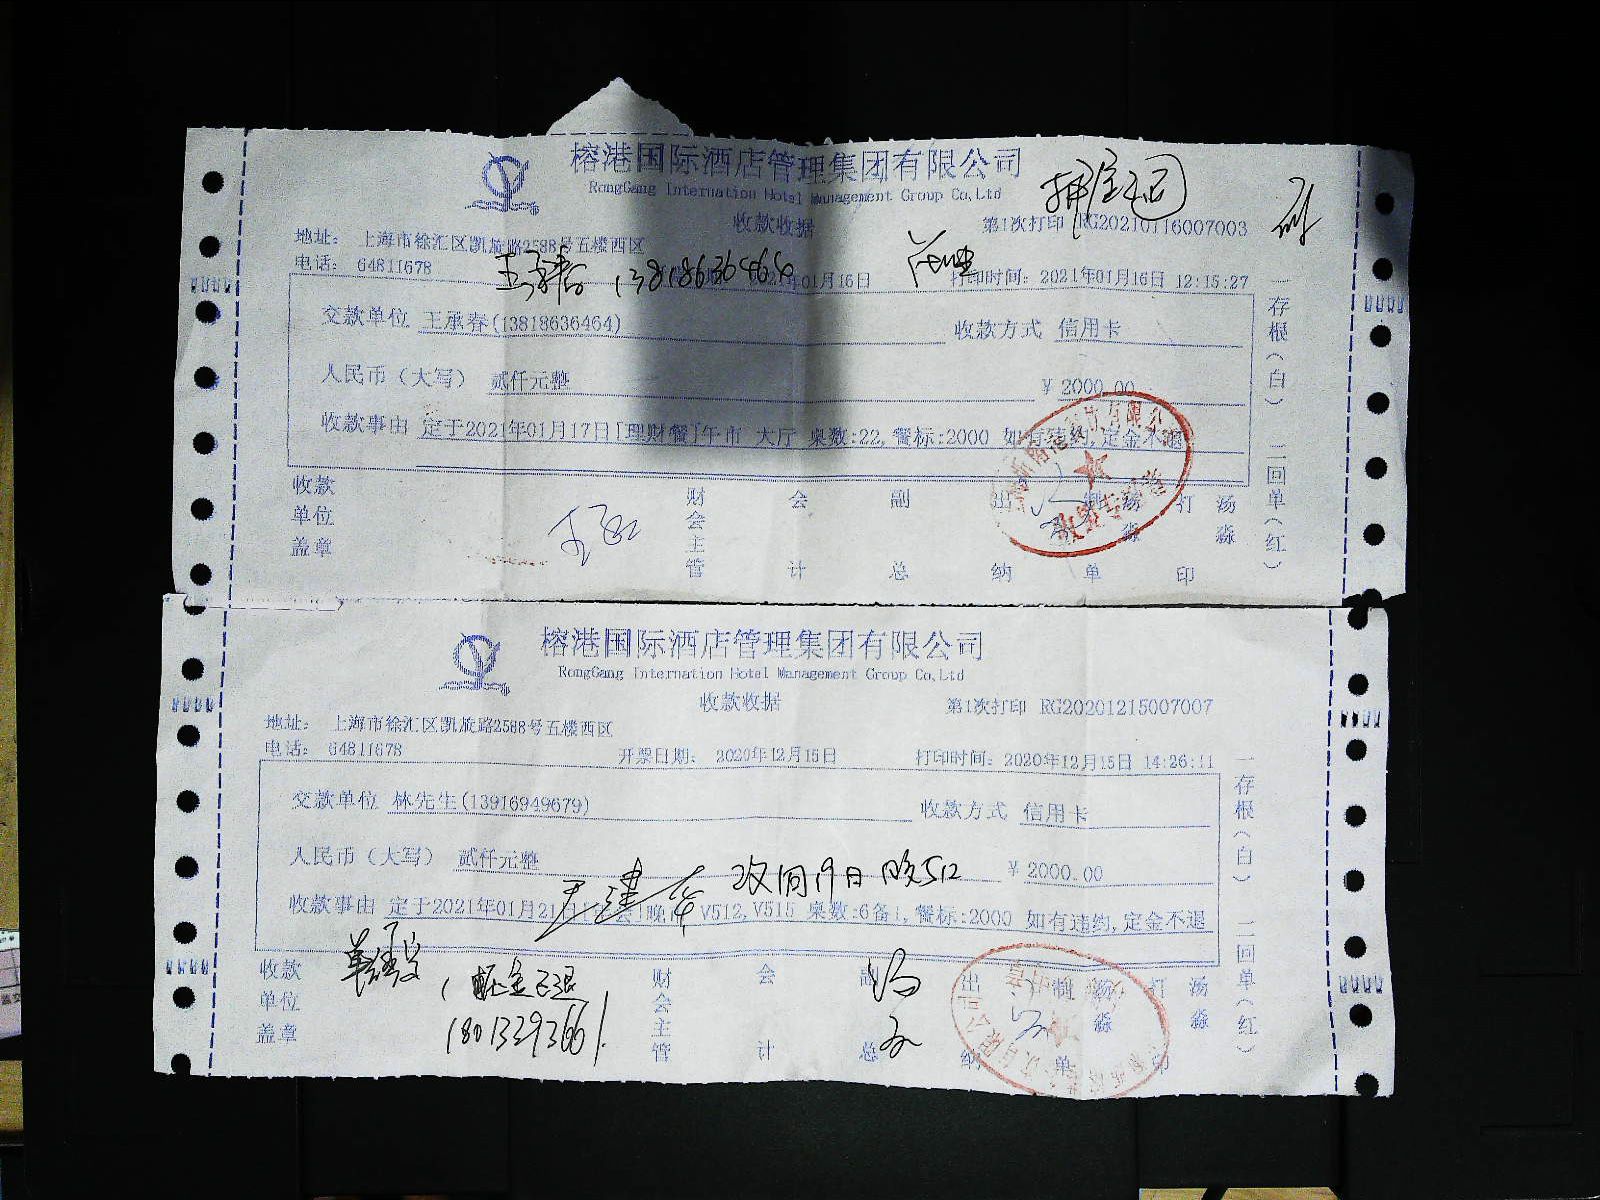 榕港国际酒店管理集团有限公司
RongGang Internation Hotel Management Group Co,Ltd
收款收据
第1次打印 RG20210116007003
地址： 上海市徐汇区凯旋路2588号五楼西区
电话： 64811678
王承春 13818636464
01月16日
打印时间：2021年01月16日 12:15:27
交款单位 王承春(13818636464)
收款方式 信用卡
人民币（大写） 贰仟元整
￥ 2000.00
收款事由 定于2021年01月17日[理财餐]午市 大厅 桌数:22,餐标:2000 如有违约,定金不退
一存根（白） 二回单（红）
收款单位盖章
财会主管 会计 副总 出纳 制单 汤淼 打印 汤淼
榕港国际酒店管理集团有限公司
RongGang Internation Hotel Management Group Co,Ltd
收款收据
第1次打印 RG20201215007007
地址： 上海市徐汇区凯旋路2588号五楼西区
电话： 64811678
开票日期： 2020年12月15日
打印时间：2020年12月15日 14:26:11
交款单位 林先生(13916949679)
收款方式 信用卡
人民币（大写） 贰仟元整
￥ 2000.00
19日 晚512
收款事由 定于2021年01月21日 晚市 V512,V515 桌数:6备1,餐标:2000 如有违约,定金不退
一存根（白） 二回单（红）
收款单位盖章
18013293661
财会主管 会计 副总 出纳 制单 汤淼 打印 汤淼